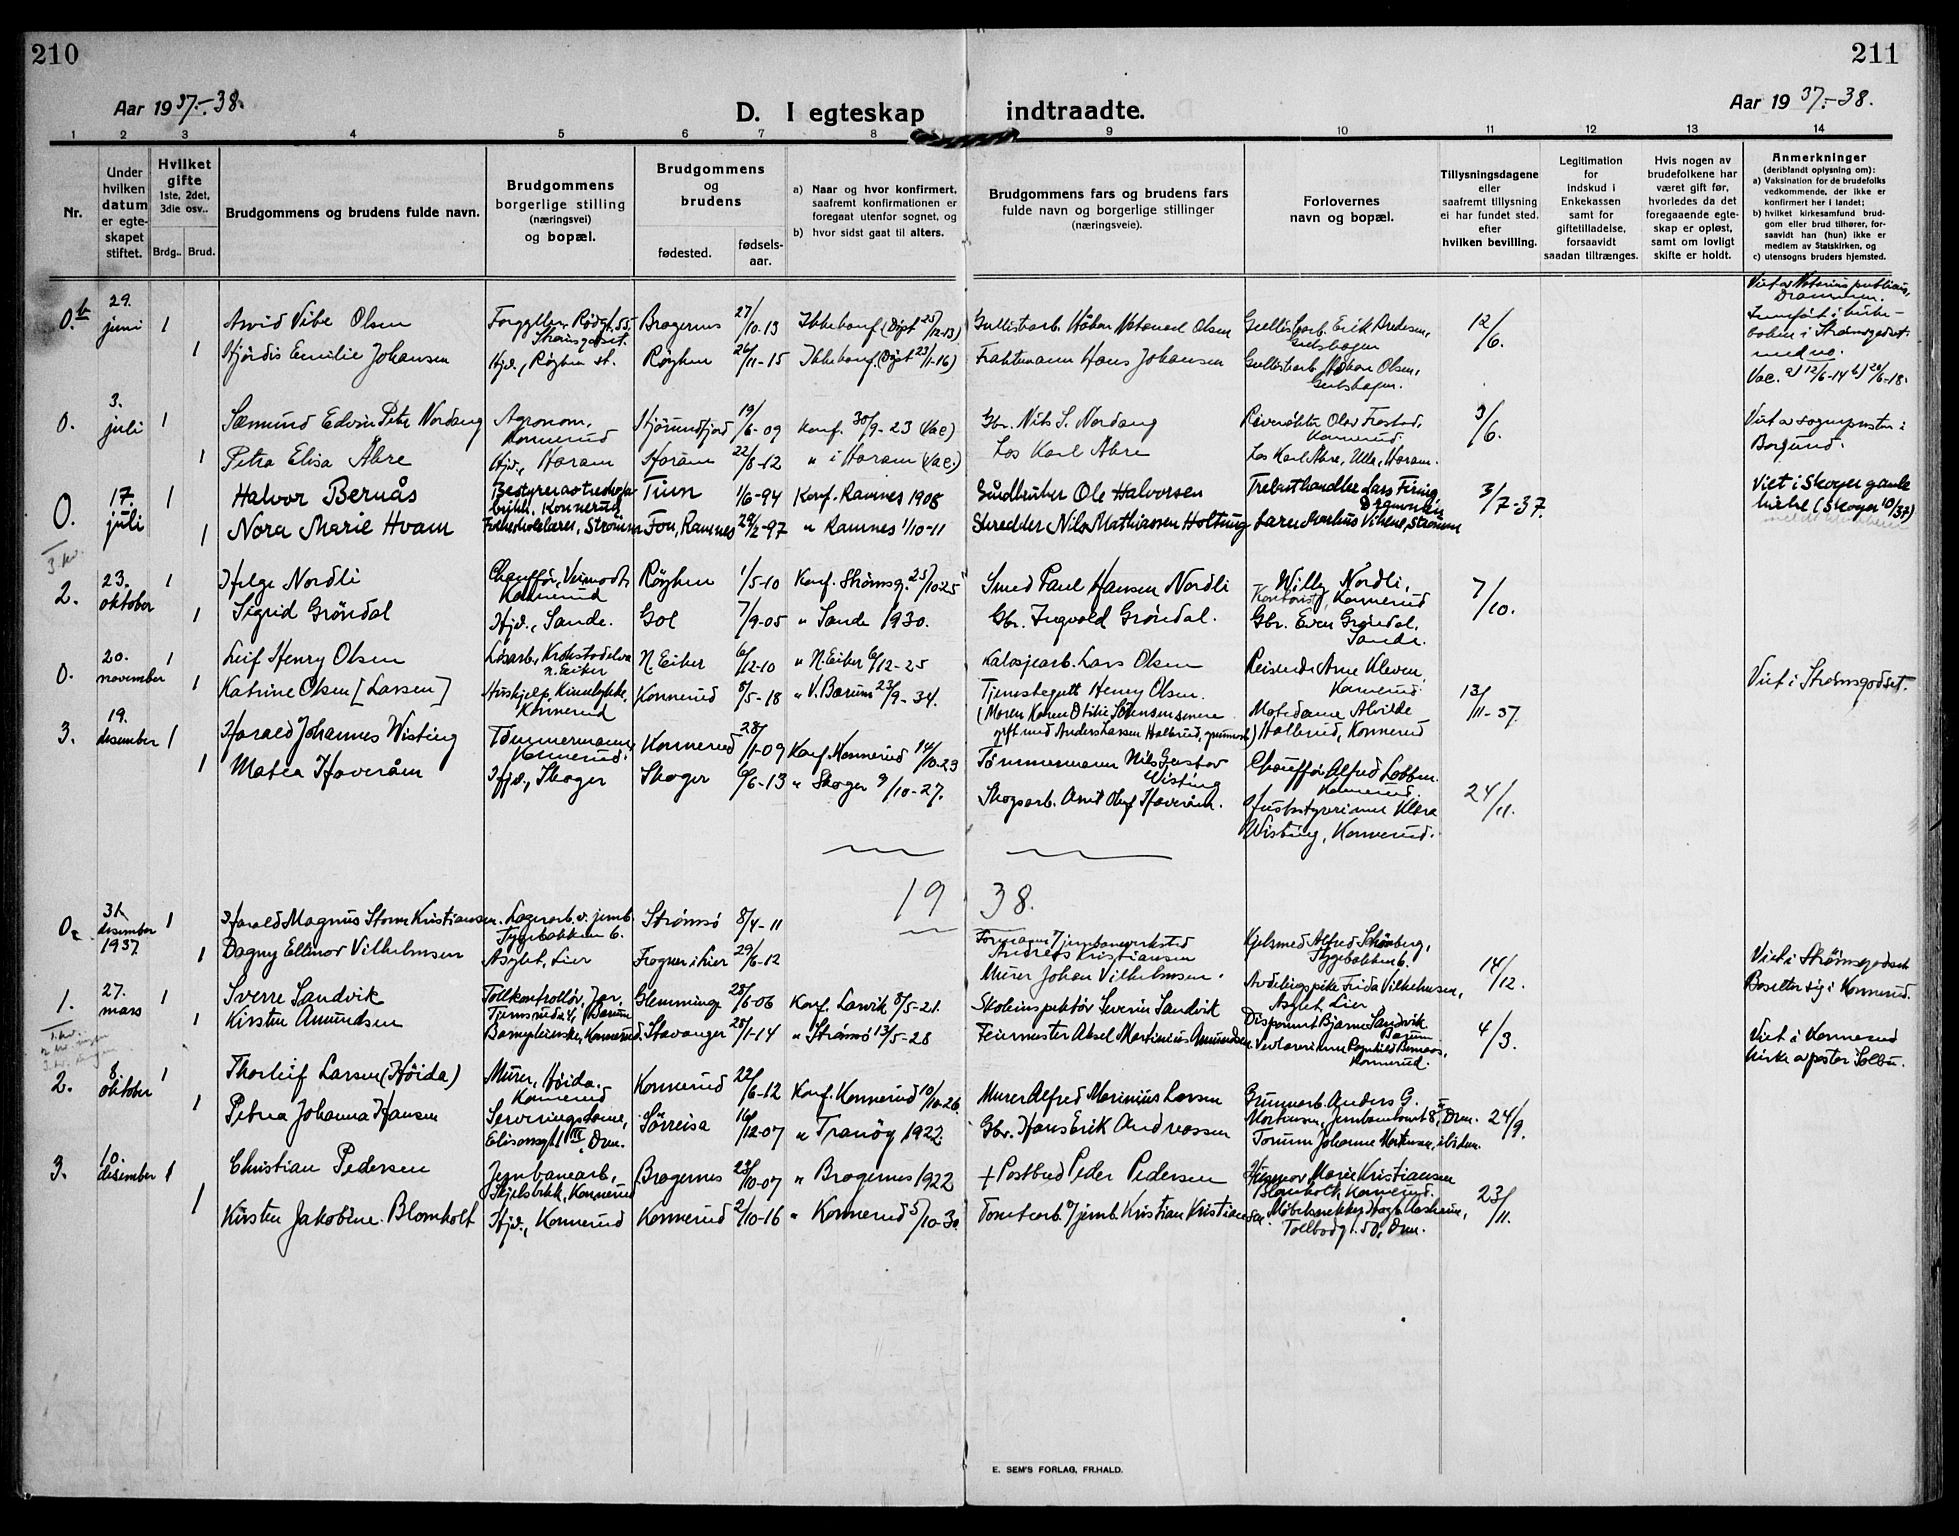 210
211
Aar 1937.-38.
D. I egteskap indtraadte.
Aar 1937.-38.
1 2 3 4 5 6 7 8 9 10 11 12 13 14
Nr.
Under hvilken datum er egteskapet stiftet.
Hvilket gifte 1ste, 2det, 3die osv..
Brdg.. Brud.
Brudgommens og brudens fulde navn.
Brudgommens borgerlige stilling (næringsvei) og bopæl.
Brudgommens og brudens
fødested.
fødsels-aar.
a) Naar og hvor konfirmert, saafremt konfirmationen er foregaat utenfor sognet, og
b) hvor sidst gaat til alters.
Brudgommens fars og brudens fars fulde navn og borgerlige stillinger (næringsveie).
Forlovernes navn og bopæl.
Tillysningsdagene eller saafremt tillysning ei har fundet sted. efter hvilken bevilling.
Legitimation for indskud i Enkekassen samt for giftetilladelse, forsaavidt saadan tiltrænges.
Hvis nogen av brudefolkene har været gift før, hvorledes da det foregaaende egteskap er opløst, samt om lovligt skifte er holdt.
Anmerkninger (deriblandt oplysning om):
a) Vaksination for de brudefolks vedkommende, der ikke er konfirmert her i landet;
b) hvilket kirkesamfund brudgom eller brud tilhører, forsaavidt han (hun) ikke er medlem av Statskirken, og
c) utensogns bruders hjemsted.
0.b 29. juni 1 Arvid Vibe Olsen Bragernes 27/10-13 Ikke konf. (Døpt 25/12-13) Gullistarb. Håkon Olsen Gullistarb. Erik 12/6.
1 Hjørdis Emilie Johansen Hjv., Røyken st. Røyken 26/11-15 Ikke konf. (Døpt 23/1-16) Fraktemann Hans Johansen Gullistarb. Håkon Olsen,
Viet av Notarius publicus, Drammen.
Vac. a) 12/6-14 b) 20/6-18.
0. 3. juli 1 Sæmund Edvin Peter Nordang Agronom, Konnerud Hjørundfjord 19/6-09 Konf. 30/9-23 (Vac) Gbr. Nils S. Nordang Olav Frostad, Konnerud. 3/6.
Viet av sognepresten i Borgund.
1 Petra Elisa Åkre Hjv., Haram Haram 22/8-12 " i Haram (Vac.) Los Karl Åkre Los Karl Åkre, Ulla, Haram.
0. 17. juli 1 Halvor Bernås Konnerud Tinn 1/6-94 Konf. Ramnes 1908 Gårdbruker Ole Halvorsen Trelasthandler Lars Drammen 3/7-37.
Viet i Skoger gamle kirke (Skoger 10/37)
1 Nora Marie Hvam Strømm Fon, Ramnes 29/2-97 " Ramnes 1/10-11 Skredder Nils Mathiassen Holtung
2. 23. oktober 1 Helge Nordli Chauffør, Konnerud Røyken 1/5-10 Konf. Strømsg. 25/10-25 Smed Paul Hansen Nordli Willy Nordli, Kontorist, Konnerud 7/10.
1 Sigrid Grøndal Hjv., Sande. Gol 7/9-05 " Sande 1930. Gbr. Ingvald Grøndal. Gbr. Even Grøndal, Sande.
0. 20. november 1 Leif Henry Olsen Løsarb., Krokstadelva N. Eiker N. Eiker 6/12-10 " N. Eiker 6/12-25 Kalosjearb. Lars Olsen Reisende Arne Kleven, Konnerud.
Viet i Strømsgodset.
1 Katrine Olsen [Larsen] Konnerud Konnerud 8/5-18 " V. Bærum 23/9-34. Henry Olsen. 13/11-37.
3. 19. desember 1 Harald Johannes Wisting Tømmermann, Konnerud. Konnerud 28/1-09 Konf. Konnerud 14/10-23 Tømmermann Nils Gustav Wisting Chauffør Alfred Lobben Konnerud. 24/11.
1 Matea Haveråen Hjv., Skoger Skoger 6/6-13 " Skoger 9/10-27. Skogsarb. Haveråen. Husbestyrerinne Klara Wisting, Konnerud.
19 38.
0a. 31. desember 1937. 1 Harald Magnus Storm Kristiansen. Lagerarb. v. jernb. Tyggebakken 6. Strømsø 8/4-11 Andreas Kristiansen Alfred Schønberg, Tyggebakken 6. 14/12.
Viet i Strømsgodset. Bosetter sig i Konnerud.
1 Dagny Ellinor Vilhelmsen Asylet, Lier Frogner i Lier 29/6-12 Murer Johan Vilhelmsen. Avdelingspike Frida Vilhelmsen, Asylet, Lier
1. 27. mars 1 Sverre Sandvik Tollkontrollør, Jar, Tjernsrud 24, Bærum Glemminge 25/6-06 Konf. Larvik 8/5-21. Skoleinspektør Severin Sandvik Disponent Bjarne Sandvik Bærum 4/3.
Viet i Konnerud kirke av pastor Solbu.
1 Kirsten Amundsen Konnerud. Stavanger 25/1-14 " Strømsø 13/5-28 Feiermester Aksel Martinius Amundsen Ragnhild Bernaas, Konnerud.
2. 8. oktober 1 Thorleif Larsen (Høida) Murer, Høida, Konnerud Konnerud 22/6-12 Konf. Konnerud 10/10-26. Murer Alfred Marinius Larsen Gummarb. Anders G. Mortensen, Drm. 24/9.
1 Petra Johanna Hansen Drm. Sørreisa 16/12-07 " Tranøy 1922. Gbr. Hans Erik Andreassen Johanne Mortensen,
3. 10. desember 1 Christian Pedersen Jernbanearb., Konnerud Bragernes 23/10-07 " Bragernes 1922 + Postbud Peder Pedersen Husmor Marie Kristiansen Blomholt, Konnerud. 23/11.
1 Kirsten Jakobine Blomholt Hjv., Konnerud Konnerud 2/10-16 " Konnerud 5/10-30. Tomtearb. v/jernb. Kristian Kristiansen. Tollbodg. 50, Drm.
E. SEM'S FORLAG, FR.HALD.